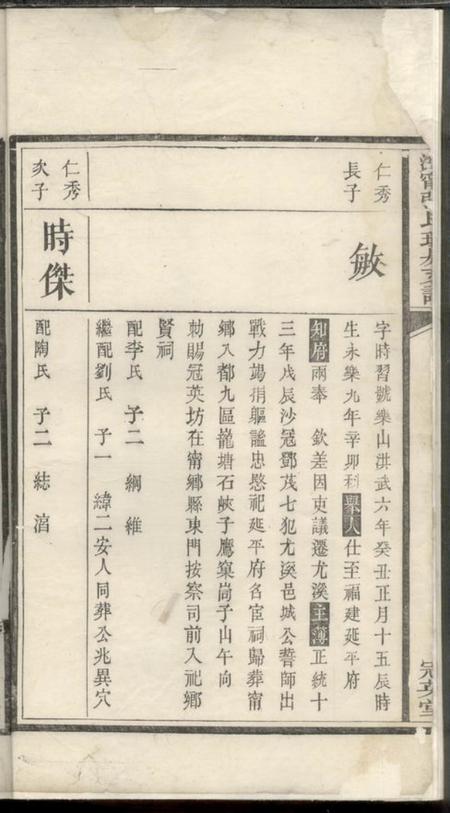 仁秀
長子
敏
字時習號樂山洪武六年癸丑正月十五辰時
生永樂九年辛卯科舉人仕至福建延平府
知府兩奉 欽差因吏議遷尤溪主薄正統十
三年戊辰沙冠鄧茂七犯尤溪邑城公誓師出
戰力竭捐軀謚忠愍祀延平府名宦祠歸葬甯
鄉入都九區龍塘石峽子鷹窠崗子山午向
勅賜冠英坊在甯鄉縣東門按察司前入祀鄉
賢祠
配李氏 子二 綱 維
繼配劉氏 子一 緯二安人同葬公兆異穴
仁秀
次子
時傑
配陶氏 子二 綕 濇